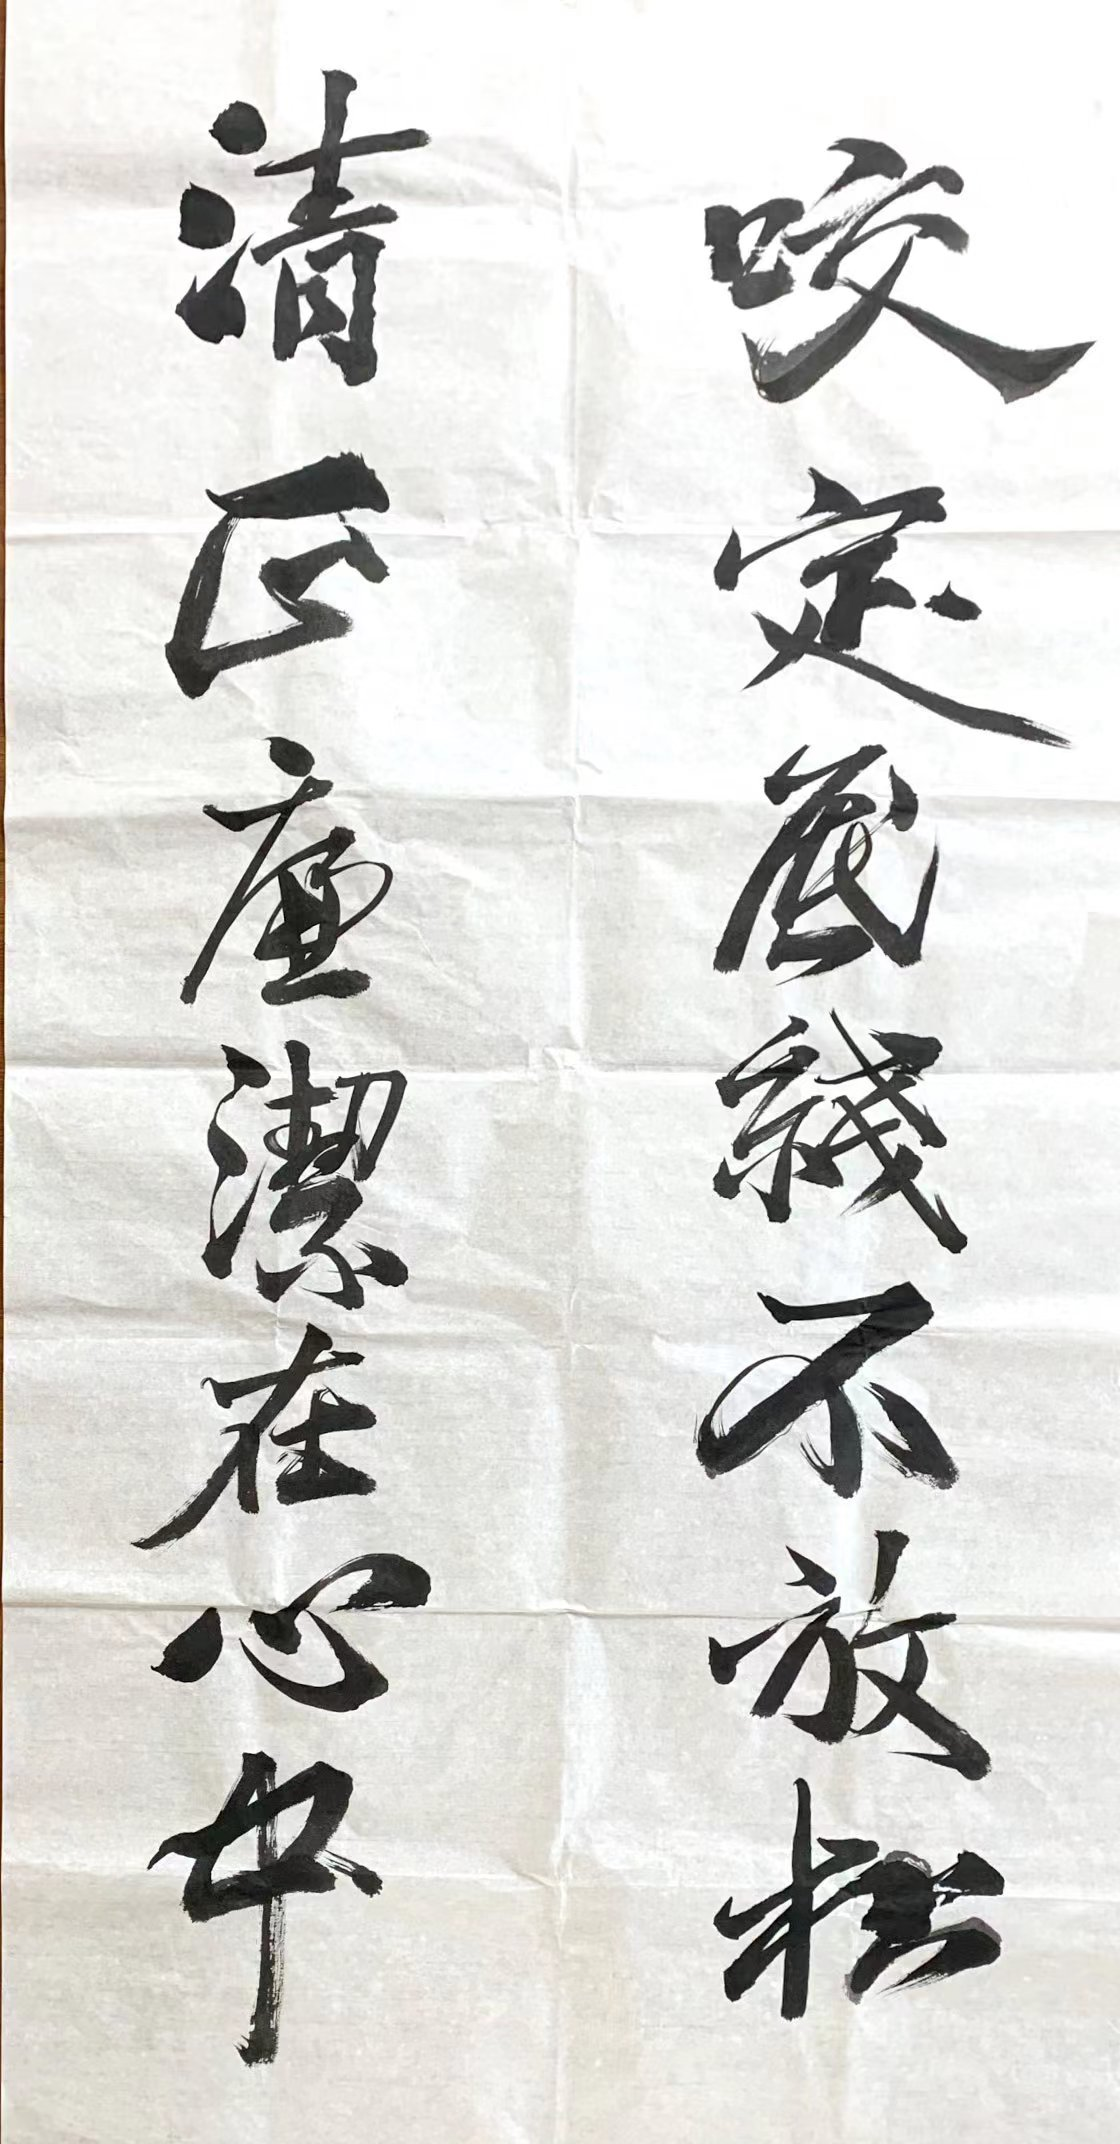 咬定底綫不放松
清正廉潔在心中